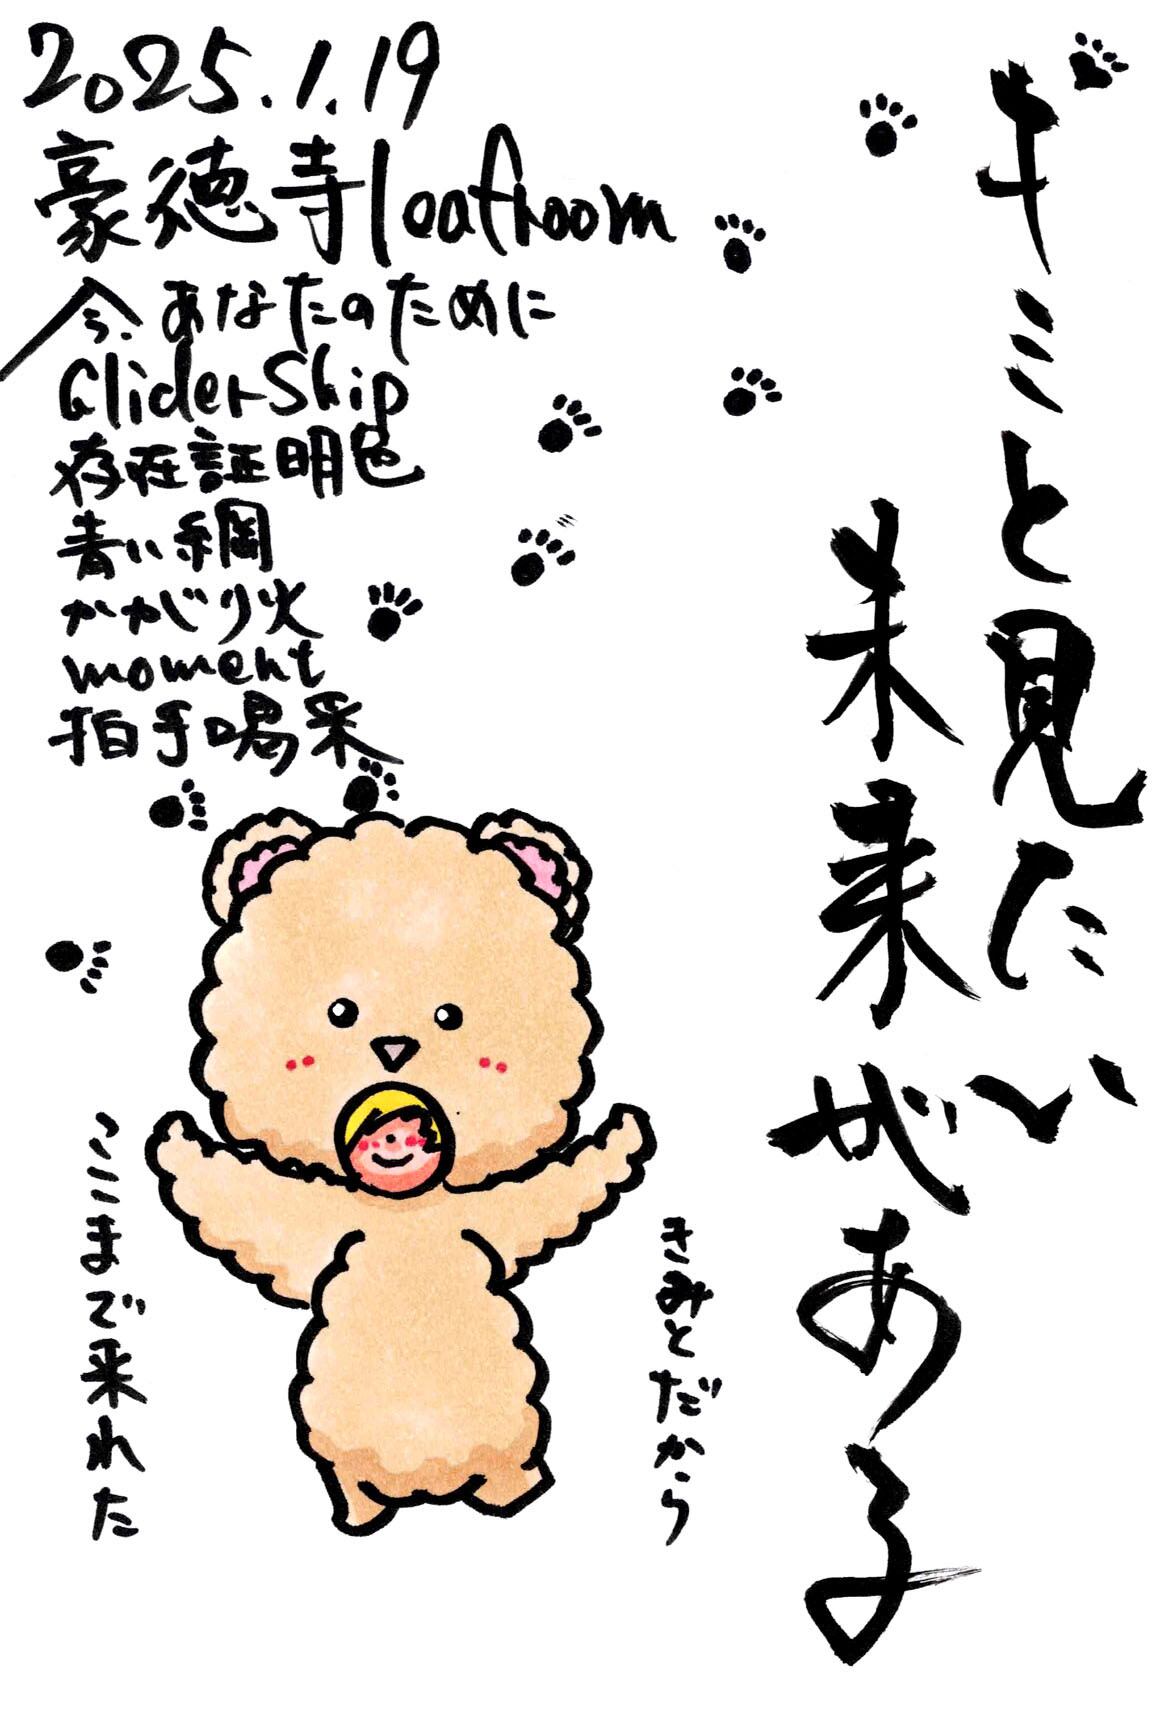 2025.1.19
豪徳寺leafroom
今、あなたのために
GliderShip
存在証明色
青い綱
かがり火
moment
拍手喝采
キミと見たい
未来がある
きみとだから
ここまで来れた